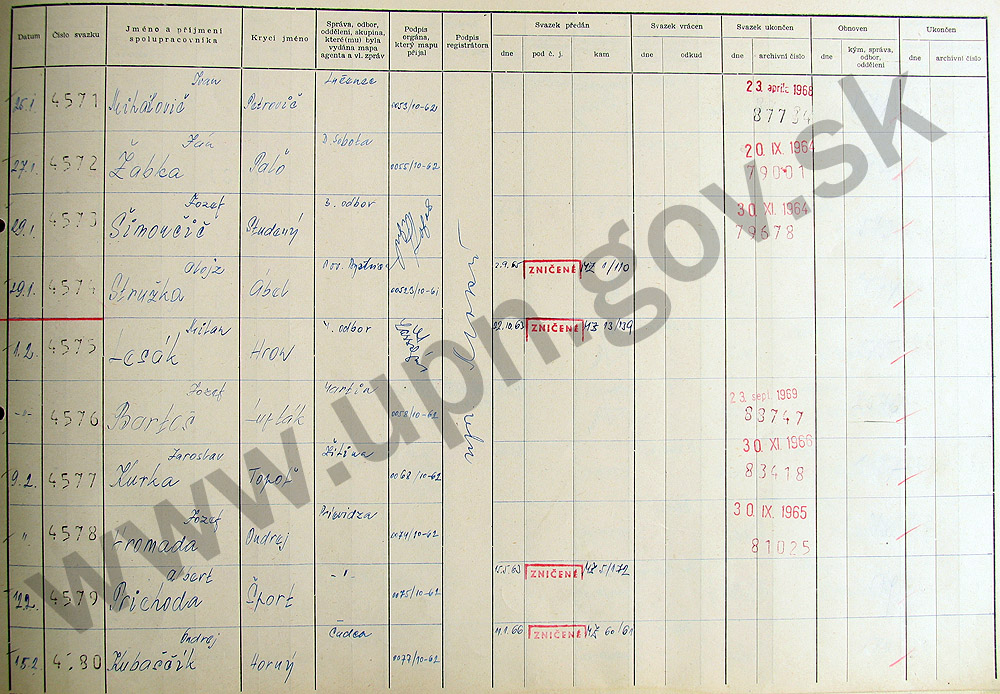 Datum
Číslo svazku
Jméno a příjmení spolupracovníka
Krycí jméno
Správa, odbor, oddělení, skupina, které(mu) byla vydána mapa agenta a vl. zpráv
Podpis orgána, který mapu přijal
Podpis registrátora
Svazek předán
dne
pod č. j.
kam
Svazek vrácen
dne
odkud
Svazek ukončen
dne
archivní číslo
Obnoven
dne
kým, správa, odbor, oddělení
Ukončen
dne
archivní číslo
Ivan Lučenec 23. apríla 1968
25.1. 4571 Mihálovič Petrovič 0053/10-62 87734
Ján R. Sobota 20. IX. 1964
27.1. 4572 Žabka Palo 0055/10-62 79001
Jozef 3. odbor 30. XI. 1964
29.1. 4573 Šimončič Studený 79678
Alojz 2.9.65 ZNIČENÉ 1/110
29.1. 4574 Stružka Ábel 00523/10-61
Milan odbor 22.10.63 ZNIČENÉ 13/139
1.2. 4575 Lesák Hrow
Jozef Martin 23. sept. 1969
-"- 4576 Bartoš Lupták 0058/10-62 83747
Jaroslav Žilina 30. XI. 1966
9.2. 4577 Kurka Topoľ 0068/10-62 83418
Jozef Prievidza 30. IX. 1965
-"- 4578 Hromada Ondrej 0074/10-62 81025
Albert -"- 15.5.63 ZNIČENÉ 5/172
12.2. 4579 Príchoda Šport 0075/10-62
Ondrej Čadca 11.1.66 ZNIČENÉ 60/61
15.2. 4580 Kubaščík Horný 0077/10-62
www.upn.gov.sk